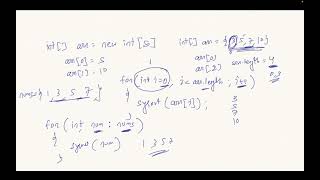 int[] arr = new int[50]
arr[0] = 5
arr[1] = 10
int[] arr = {3, 5, 7, 10}
arr[0]
arr[2]
arr.length = 4
for (int i=0; i<arr.length; i++)
{
sysout (arr[i]);
}
3
5
7
10
0,3
nums = {1, 3, 5, 7}
for (int num : nums)
{
sysout (num)
}
1 3 5 7